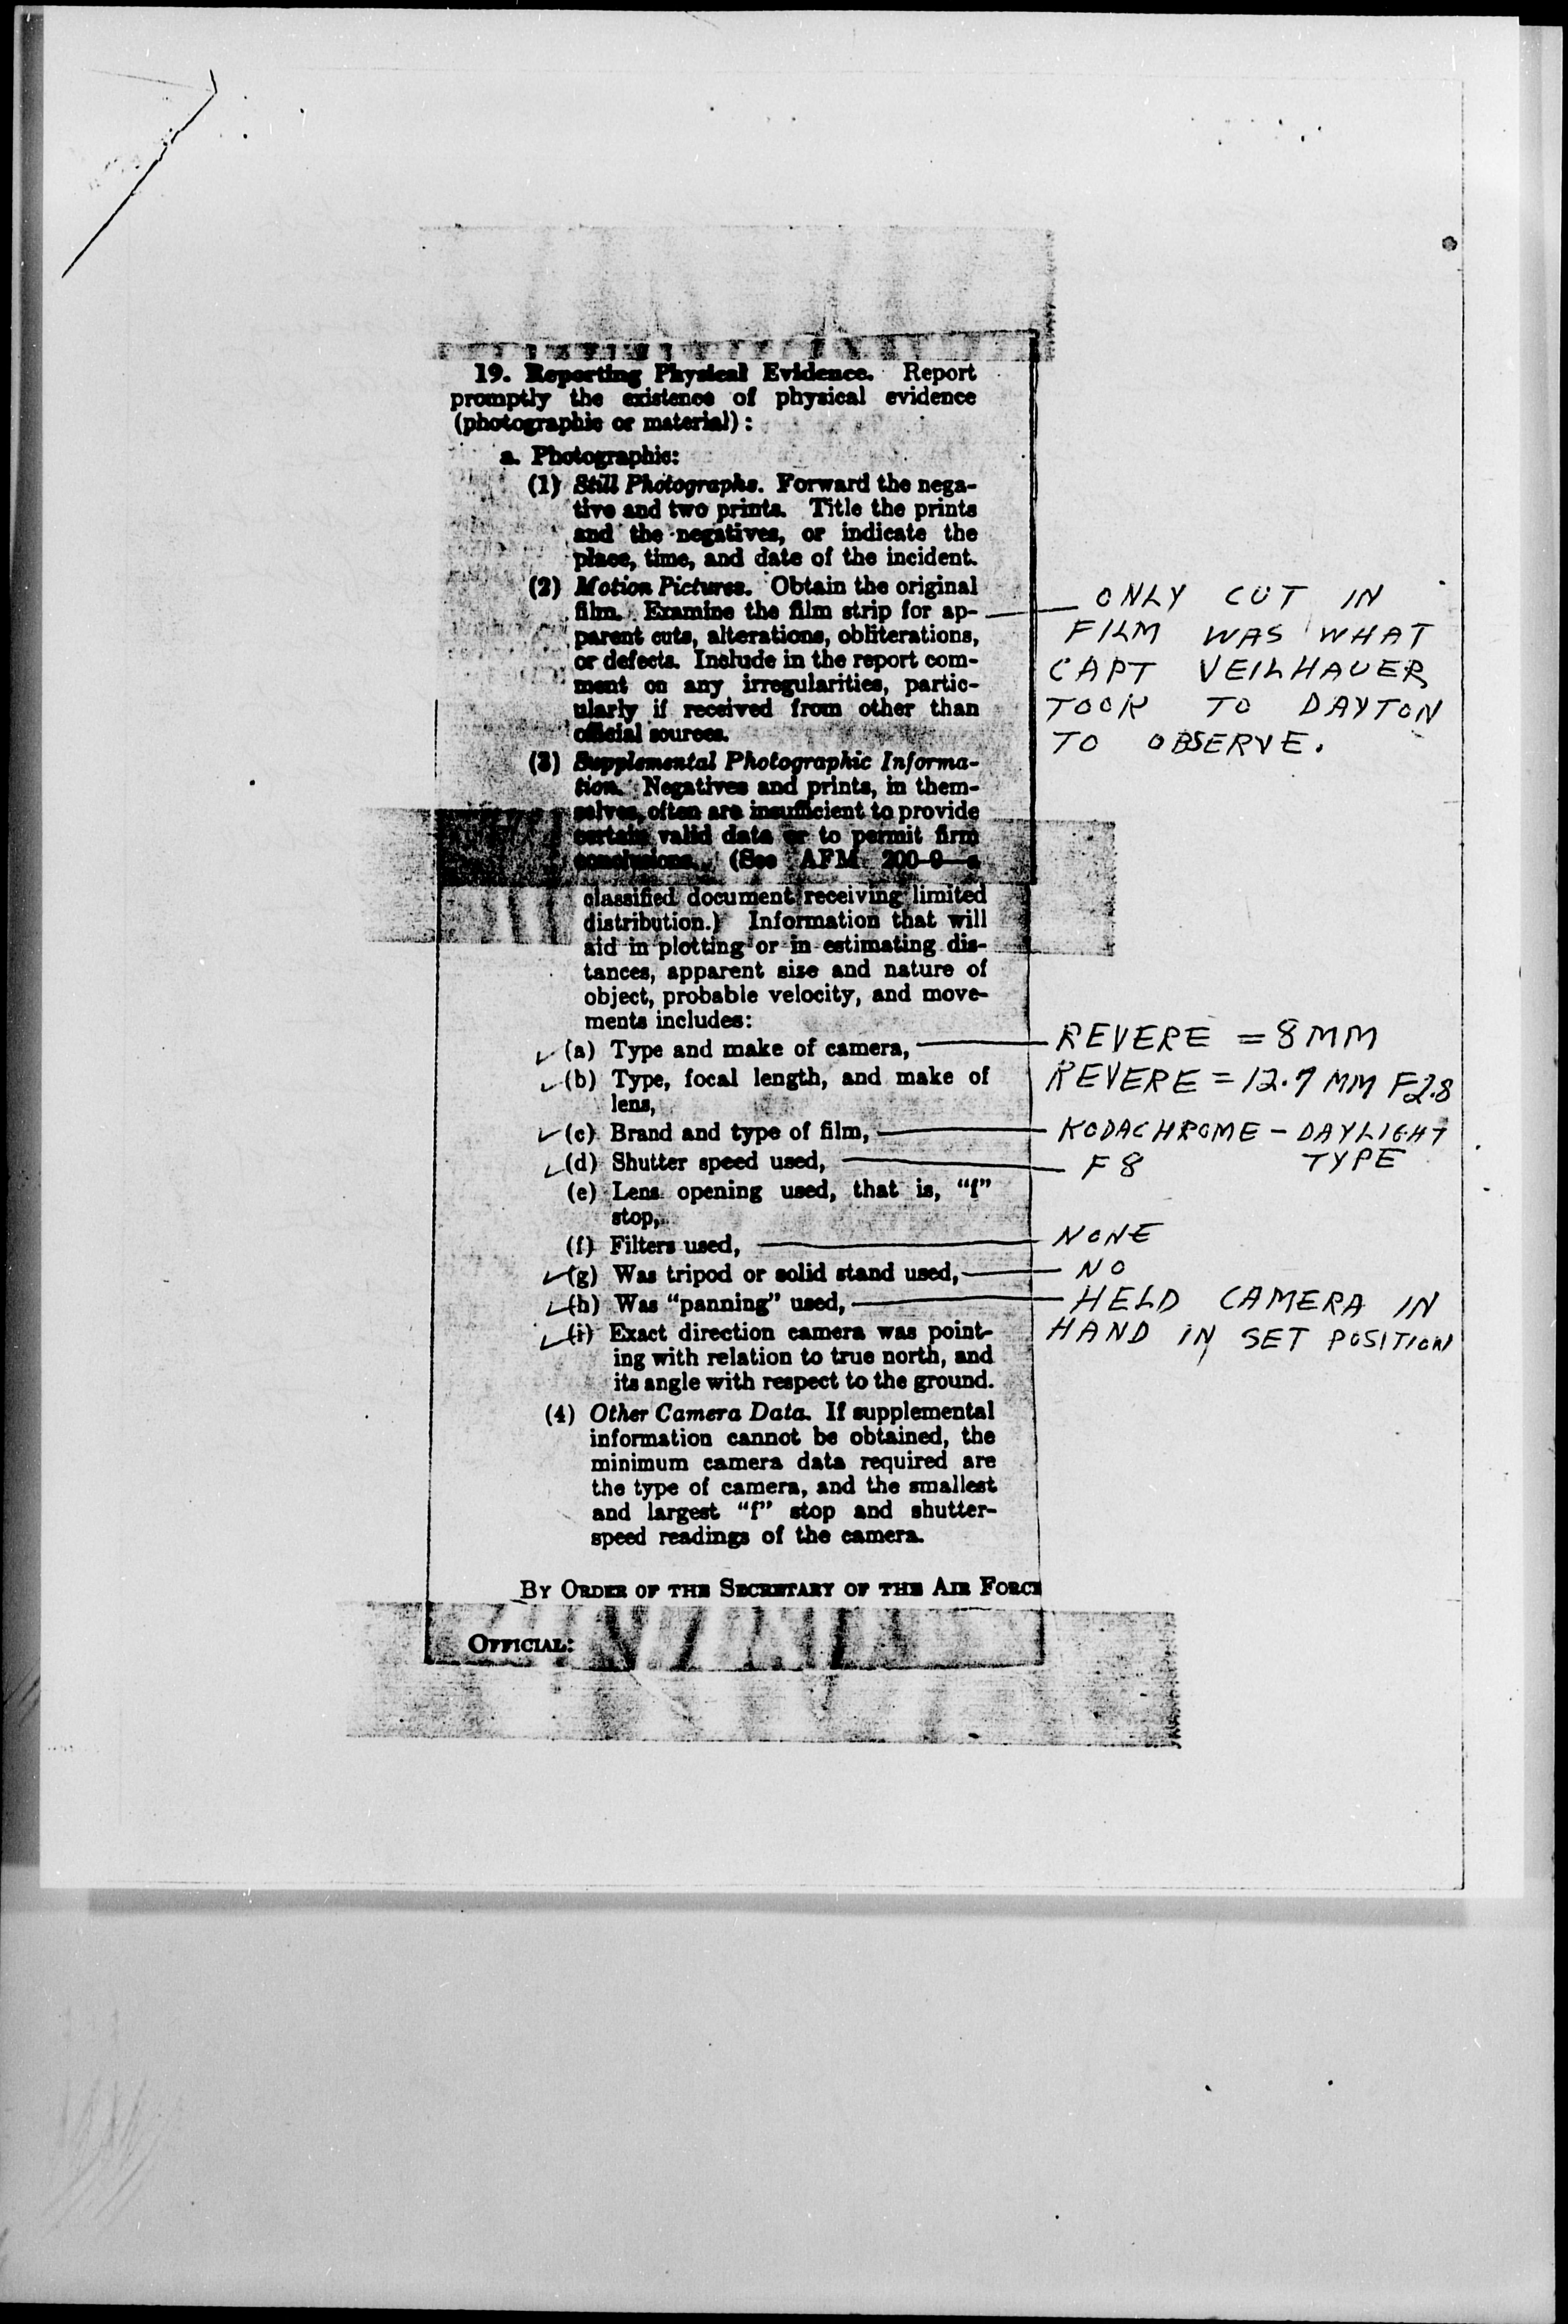 19. Reporting Physical Evidence. Report
promptly the existence of physical evidence
(photographic or material):
a. Photographic:
(1) Still Photographs. Forward the nega-
tive and two prints. Title the prints
and the negatives, or indicate the
place, time, and date of the incident.
(2) Motion Pictures. Obtain the original
film. Examine the film strip for ap-
parent cuts, alterations, obliterations,
or defects. Include in the report com-
ment on any irregularities, partic-
ularly if received from other than
official sources.
ONLY CUT IN
FILM WAS WHAT
CAPT VEILHAUER
TOOK TO DAYTON
TO OBSERVE.
(3) Supplemental Photographic Informa-
tion. Negatives and prints, in them-
selves, often are insufficient to provide
certain valid data or to permit firm
conclusions. (See AFM 200-9—a
classified document receiving limited
distribution.) Information that will
aid in plotting or in estimating dis-
tances, apparent size and nature of
object, probable velocity, and move-
ments includes:
(a) Type and make of camera, REVERE = 8MM
(b) Type, focal length, and make of REVERE = 12.7 MM F2.8
lens,
(c) Brand and type of film, KODACHROME - DAYLIGHT
TYPE
(d) Shutter speed used, F8
(e) Lens opening used, that is, "f"
stop,
(f) Filters used, NONE
(g) Was tripod or solid stand used, NO
(h) Was "panning" used, HELD CAMERA IN
HAND IN SET POSITION
(i) Exact direction camera was point-
ing with relation to true north, and
its angle with respect to the ground.
(4) Other Camera Data. If supplemental
information cannot be obtained, the
minimum camera data required are
the type of camera, and the smallest
and largest "f" stop and shutter-
speed readings of the camera.
BY ORDER OF THE SECRETARY OF THE AIR FORCE
OFFICIAL: